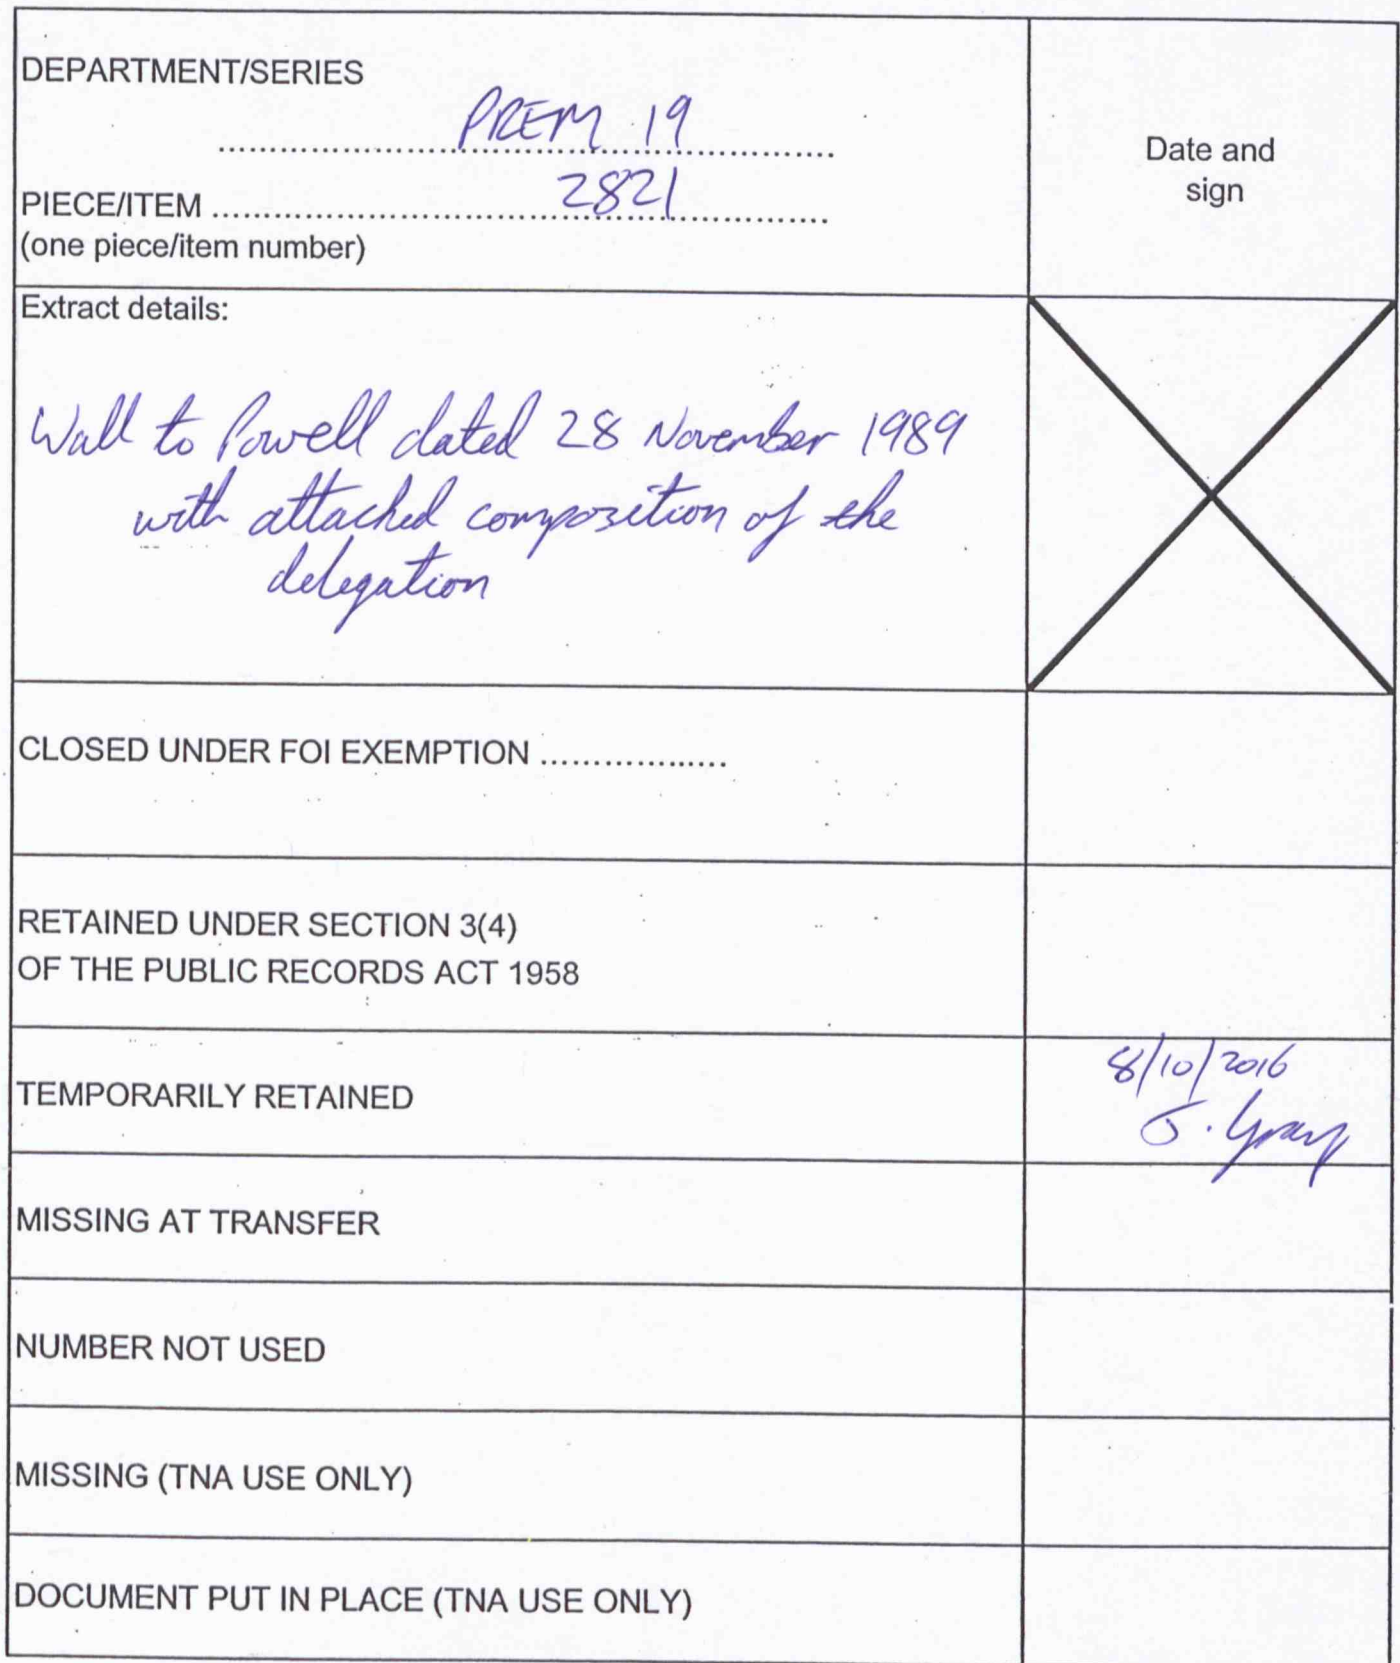 DEPARTMENT/SERIES
PREM 19
Date and
sign
PIECE/ITEM ........................................ 2821
(one piece/item number)
Extract details:
Wall to Powell dated 28 November 1989
with attached composition of the
delegation
CLOSED UNDER FOI EXEMPTION ..................
RETAINED UNDER SECTION 3(4)
OF THE PUBLIC RECORDS ACT 1958
TEMPORARILY RETAINED
8/10/2016
J. Gray
MISSING AT TRANSFER
NUMBER NOT USED
MISSING (TNA USE ONLY)
DOCUMENT PUT IN PLACE (TNA USE ONLY)